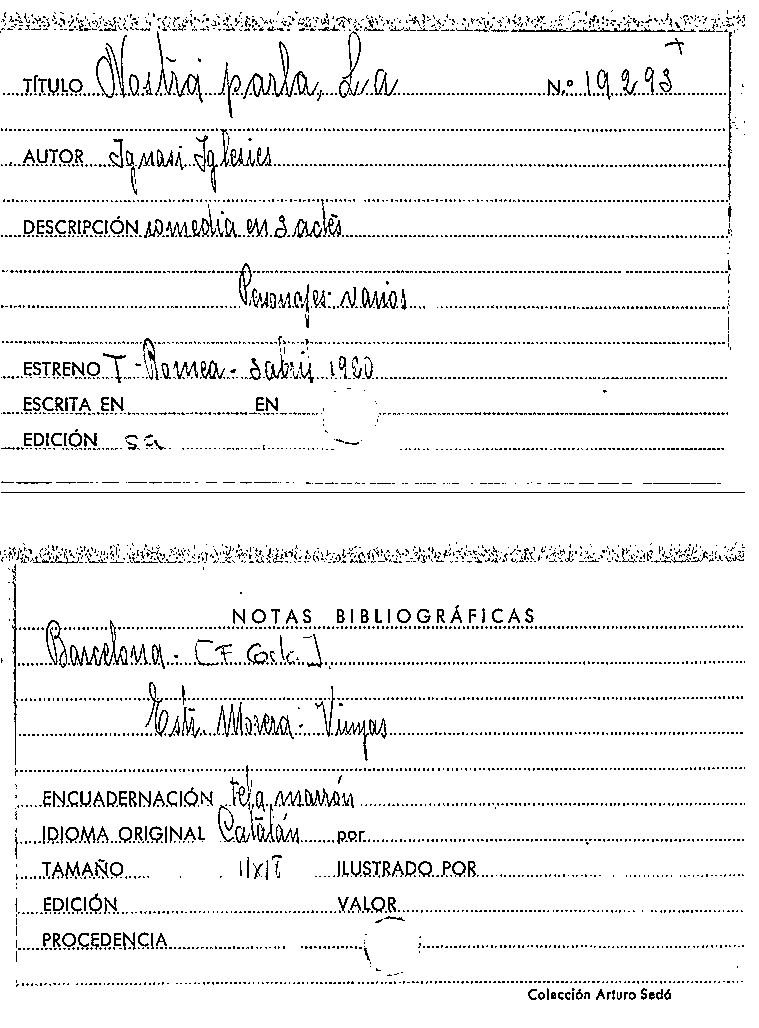 TÍTULO Nostra parla, La N.º 19293
AUTOR Ignasi Iglesies
DESCRIPCIÓN comedia en 3 actes
Personajes: varios
ESTRENO T. Romea - 3 abril 1920
ESCRITA EN EN
EDICIÓN sa
NOTAS BIBLIOGRÁFICAS
Barcelona - [F.
Estr. Morera - Vinyas
ENCUADERNACIÓN tela marrón
IDIOMA ORIGINAL Catalán por
TAMAÑO ILUSTRADO POR
EDICIÓN VALOR
PROCEDENCIA
Colección Arturo Sedó